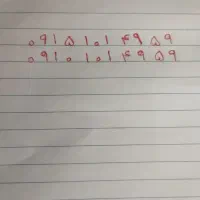 ۰۹۱۵۱۰۱۴۹۵۹
۰۹۱۰۱۰۱۴۹۵۹